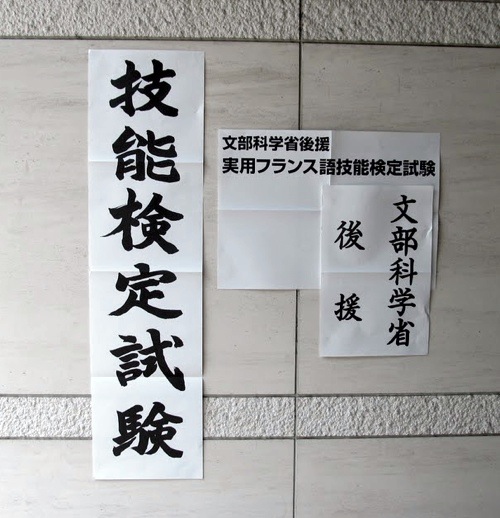 技能検定試験
文部科学省後援
実用フランス語技能検定試験
文部科学省
後援